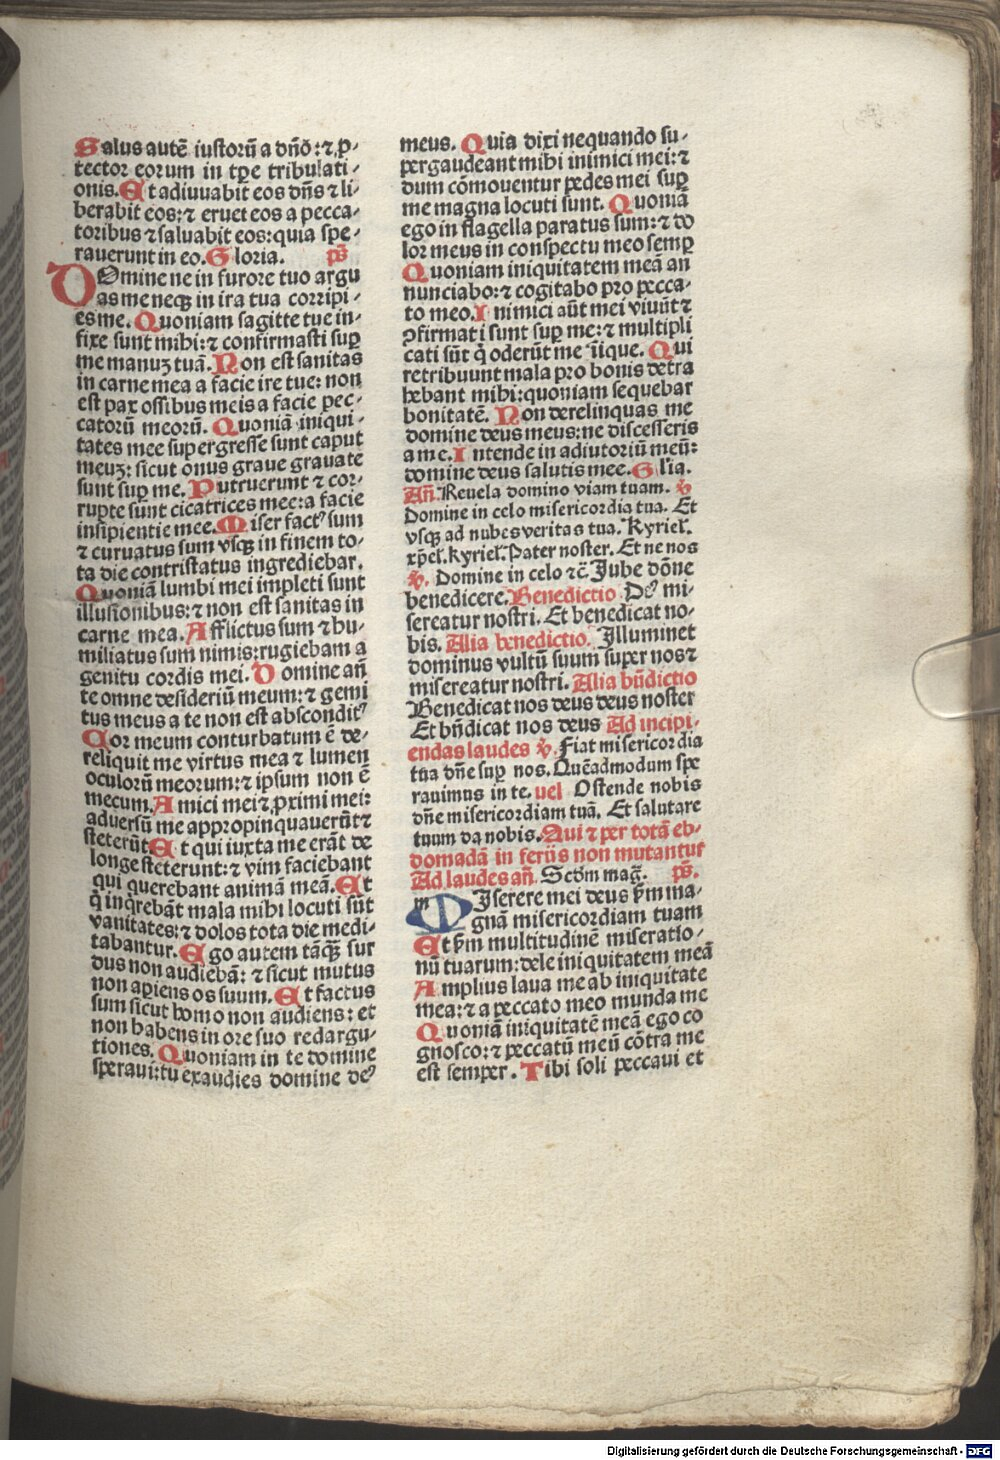 Salus autē iustorū a dn̄o: ⁊ ꝓ-
tector eorum in tp̄e tribulati-
onis. Et adiuuabit eos dn̄s ⁊ li-
berabit eos: ⁊ eruet eos a pecca-
toribus ⁊ saluabit eos: quia spe-
rauerunt in eo. Gloria. ps̄
DOmine ne in furore tuo argu
as me neqꝫ in ira tua corripi-
es me. Quoniam sagitte tue in-
fixe sunt mihi: ⁊ confirmasti suꝑ
me manuꝫ tuā. Non est sanitas
in carne mea a facie ire tue: non
est pax ossibus meis a facie pec-
catorū meorū. Quoniā iniqui-
tates mee supergresse sunt caput
meuꝫ: sicut onus graue grauate
sunt suꝑ me. Putruerunt ⁊ cor-
rupte sunt cicatrices mee: a facie
insipientie mee. Miser factꝰ sum
⁊ curuatus sum vsqꝫ in finem to-
ta die contristatus ingrediebar.
Quoniā lumbi mei impleti sunt
illusionibus: ⁊ non est sanitas in
carne mea. Afflictus sum ⁊ hu-
miliatus sum nimis: rugiebam a
genitu cordis mei. Domine an̄
te omne desideriū meum: ⁊ gemi
tus meus a te non est absconditꝰ
Cor meum conturbatum ē de-
reliquit me virtus mea ⁊ lumen
oculorū meorum: ⁊ ipsum non ē
mecum. Amici mei ⁊ ꝓximi mei:
aduersū me appropinquauerūt ⁊
steterūt Et qui iuxta me erāt de
longe steterunt: ⁊ vim faciebant
qui querebant animā meā. Et
q̄ inq̄rebāt mala mihi locuti sūt
vanitates: ⁊ dolos tota die medi-
tabantur. Ego autem tāqꝫ sur
dus non audiebā: ⁊ sicut mutus
non aꝑiens os suum. Et factus
sum sicut homo non audiens: et
non habens in ore suo redargu-
tiones. Quoniam in te domine
speraui: tu exaudies domine deꝰ
meus. Quia dixi nequando su-
ꝑgaudeant mihi inimici mei: ⁊
dum cōmouentur pedes mei suꝑ
me magna locuti sunt. Quoniā
ego in flagella paratus sum: ⁊ do
lor meus in conspectu meo semꝑ
Quoniam iniquitatem meā an
nunciabo: ⁊ cogitabo pro pecca-
to meo. Inimici aūt mei viuūt ⁊
ꝯfirmati sunt suꝑ me: ⁊ multipli
cati sūt q̄ oderūt me īique. Qui
retribuunt mala pro bonis detra
hebant mihi: quoniam sequebar
bonitatē. Non derelinquas me
domine deus meus: ne discesseris
a me. Intende in adiutoriū meū:
domine deus salutis mee. Gl'ia.
An̄. Reuela domino viam tuam. ℣
Domine in celo misericordia tua. Et
vsqꝫ ad nubes veritas tua. Kyriel'.
xp̄el'. kyriel'. Pater noster. Et ne nos
℣. Domine in celo ⁊c̄. Jube dōne
benedicere. Benedictio Deꝰ mi-
sereatur nostri. Et benedicat no-
bis. Alia benedictio. Illuminet
dominus vultū suum super nos ⁊
misereatur nostri. Alia bn̄dictio
Benedicat nos deus deus noster
Et bn̄dicat nos deus Ad incipi-
endas laudes ℣. Fiat misericordia
tua dn̄e suꝑ nos. Quēadmodum spe
rauimus in te. uel Ostende nobis
dn̄e misericordiam tuā. Et salutare
tuum da nobis. Qui ⁊ per totā eb-
domadā in feriis non mutantur
Ad laudes an̄. Scd̄m mag̅. ps̄.
MIserere mei deus ẜm ma-
gnā misericordiam tuam
Et ẜm multitudinē miseratio-
nū tuarum: dele iniquitatem meā
Amplius laua me ab iniquitate
mea: ⁊ a peccato meo munda me
Quoniā iniquitatē meā ego co
gnosco: ⁊ peccatū meū cōtra me
est semper. Tibi soli peccaui et
Digitalisierung gefördert durch die Deutsche Forschungsgemeinschaft - DFG